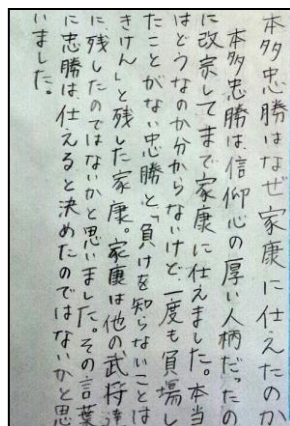 本多忠勝はなぜ家康に仕えたのか
本多忠勝は、信仰心の厚い人柄だったの
に改宗してまで家康に仕えました。本当
はどうなのか分からないけど、一度も負場し
たことがない忠勝と「負けを知らないことは
きけん」と残した家康。家康は他の武将達
に残したのではないかと思いました。その言葉
に忠勝は、仕えると決めたのではないかと思
いました。